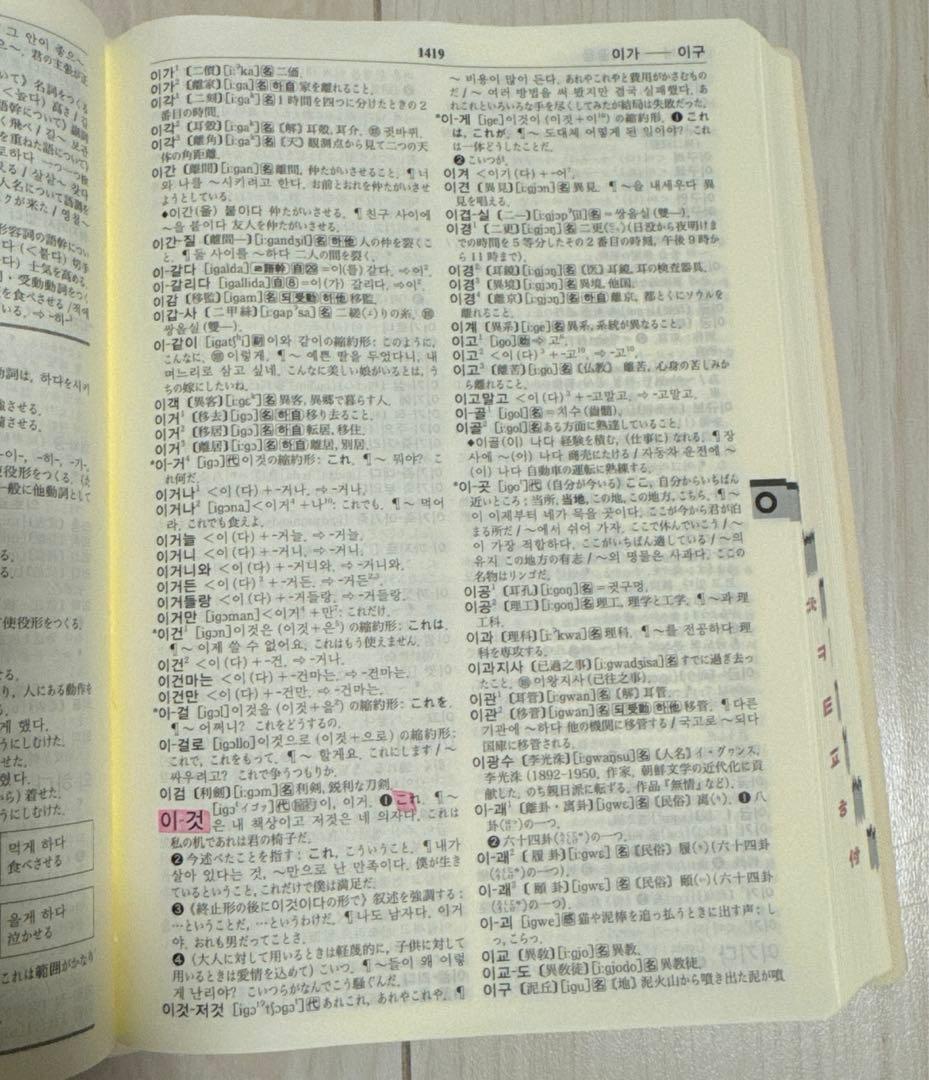 1419
이가 ── 이구
이가¹ [二價] [i:ˀka] 名 二価.
이가² [離家] [i:ga] 名 하自 家を離れること.
이각¹ [二刻] [i:gaᵏ] 名 1時間を四つに分けたときの2
番目の時間.
이각² [耳殼] [i:gaᵏ] 名 〔解〕 耳殻, 耳介. 同 귓바퀴.
이각³ [離角] [i:gaᵏ] 名 〔天〕 観測点から見て二つの天
体の角距離.
이간 [離間] [i:gan] 名 離間, 仲たがいさせること. ¶너
와 나를 ~시키려고 한다. お前とおれを仲たがいさせ
ようとしている.
◆이간(을) 붙이다 仲たがいさせる. ¶친구 사이에
~을 붙이다 友人を仲たがいさせる.
이간-질 [離間─] [i:gandʒil] 名 하他 人の仲を裂くこ
と. ¶둘 사이를 ~하다 二人の間を裂く.
이-같다 [igalda] =이(를) 같다. ⇒이².
이-갈리다 [igallida] 自 =이(가) 갈리다. ⇒이².
이감 [移監] [igam] 名 되受動 하他 移監.
이갑-사 [二甲絲] [i:gapˀsa] 名 二縒(より)の糸. 同
쌍올실(雙─).
이-같이 [igatʃʰi] 副 이와 같이の縮約形: このように,
こんなに. 同 이렇게. ¶~ 예쁜 딸을 두었다니, 내
며느리로 삼고 싶네. こんなに美しい娘がいるとは, う
ちの嫁にしたいね.
이객 [異客] [i:gɛᵏ] 名 異客, 異郷で暮らす人.
이거¹ [移去] [igɔ] 名 하自 移り去ること.
이거² [移居] [igɔ] 名 하自 転居, 移住.
이거³ [離居] [i:gɔ] 名 하自 離居, 別居.
*이-거⁴ [igɔ] 代 이것の縮約形: これ. ¶~ 뭐야? こ
れ何だ.
이거나¹ <이(다)+-거나. ⇒-거나.
이거나² [igɔna] <이거⁴+나¹⁰: これでも. ¶~ 먹어
라. これでも食えよ.
이거늘 <이(다)+-거늘. ⇒-거늘.
이거니 <이(다)+-거니. ⇒-거니.
이거니와 <이(다)+-거니와. ⇒-거니와.
이거든 <이(다)²+-거든. ⇒-거든²,³.
이거들랑 <이(다)+-거들랑. ⇒-거들랑.
이거만 [igɔman] <이거⁴+만²: これだけ.
*이건¹ [igɔn] 이것은 (이것+은⁵) の縮約形: これは.
¶~ 이제 쓸 수 없어요. これはもう使えません.
이건² <이(다)+-건. ⇒-거나.
이건마는 <이(다)+-건마는. ⇒-건마는.
이건만 <이(다)+-건만. ⇒-건만.
*이-걸 [igɔl] 이것을 (이것+을⁵) の縮約形: これを.
¶~ 어쩌니? これをどうするの.
이-걸로 [igɔllo] 이것으로 (이것+으로) の縮約形:
これで, これをもって. ¶~ 할게요. これにします / ~
싸우려고? これで争うつもりか.
이검 [利劍] [i:gɔm] 名 利剣, 鋭利な刀剣.
이-것 [igɔᵗ イゴッ] 代 이, 이거. ❶これ. ¶~
은 내 책상이고 저것은 네 의자다. これは
私の机であれは君の椅子だ.
❷今述べたことを指す: これ, こういうこと. ¶내가
살아 있다는 것, ~만으로 난 만족이다. 僕が生き
ているということ, これだけで僕は満足だ.
❸《終止形の後に이것이다の形で》叙述を強調する:
…ということだ, …というわけだ. ¶나도 남자다. 이거
야. おれも男だってことさ.
❹ (大人に対して用いるときは軽蔑的に, 子供に対して
用いるときは愛情を込めて) こいつ. ¶~들이 왜 이렇
게 난리야? こいつらがなんでこう騒ぐんだ.
이것-저것 代 あれこれ, あれやこれや. ¶
~ 비용이 많이 든다. あれやこれやと費用がかさむもの
だ / ~ 여러 방법을 써 봤지만 결국 실패했다. あ
れこれといろいろな手を尽くしてみたが結局は失敗だった.
*이-게 [ige] 이것이 (이것+이¹⁰) の縮約形. ❶これ
は, これが. ¶~ 도대체 어떻게 된 일이야? これ
は一体どうしたことだ.
❷こいつが.
이겨 <이기(다)+-어⁷.
이견 [異見] [i:gjɔn] 名 異見. ¶~을 내세우다 異
見を唱える.
이겹-실 [二─] [i:gjɔpˀʃil] 名 =쌍올실(雙─).
이경¹ [二更] [i:gjɔŋ] 名 二更 (日没から夜明けま
での時間を5等分したその2番目の時刻, 午後9時か
ら11時まで).
이경² [耳鏡] [i:gjɔŋ] 名 〔医〕 耳鏡, 耳の検査器具.
이경³ [異境] [i:gjɔŋ] 名 異境, 他国.
이경⁴ [離京] [i:gjɔŋ] 名 하自 離京, 都とくにソウルを
離れること.
이계 [異系] [i:ge] 名 異系, 系統が異なること.
이고¹ [igo] 助 ⇒고⁹.
이고² <이(다)³+-고¹⁰. ⇒-고¹⁰.
이고³ [離苦] [i:go] 名 〔仏教〕 離苦, 心身の苦しみか
ら離れること.
이고말고 <이(다)³+-고말고. ⇒-고말고.
이-골¹ [igol] 名 =치수(齒髓).
이골² [igol] 名 ある方面に熟達していること.
◆이골(이) 나다 経験を積む, (仕事に) なれる. ¶장
사에 ~(이) 나다 商売にたける / 자동차 운전에 ~
(이) 나다 自動車の運転に熟練する.
*이-곳 [igoᵗ] 代 (自分が今いる) ここ, 自分からいちばん
近いところ: 当所, 当地, この地, この地方, こちら. ¶~
이 이제부터 네가 묵을 곳이다. ここが今から君が泊
まる所だ / ~에서 쉬어 가자. ここで休んでいこう / ~
이 가장 적합하다. ここがいちばん適している / ~의
유지 この地方の有志 / ~의 명물은 사과다. ここの
名物はリンゴだ.
이공¹ [耳孔] [i:goŋ] 名 =귓구멍.
이공² [理工] [i:goŋ] 名 理工, 理学と工学. ¶~과 理
工科.
이과 [理科] [i:ˀkwa] 名 理科. ¶~를 전공하다 理
科を専攻する.
이과지사 [已過之事] [i:gwadʒisa] 名 すでに過ぎ去っ
たこと. 同 이왕지사(已往之事).
이관¹ [耳管] [i:gwan] 名 〔解〕 耳管.
이관² [移管] [igwan] 名 되受動 하他 移管. ¶다른
기관에 ~하다 他の機関に移管する / 국고로 ~되다
国庫に移管される.
이광수 [李光洙] [i:gwaŋsu] 名 〔人名〕 イ・グァンス,
李光洙 (1892-1950, 作家. 朝鮮文学の近代化に貢
献した. のち親日派に転ずる. 作品『無情』など).
이-괘¹ [離卦・离卦] [igwɛ] 名 〔民俗〕 離(り). ❶八
卦の一つ.
❷六十四卦の一つ.
이-괘² [履卦] [i:gwɛ] 名 〔民俗〕 履(り) (六十四卦
の一つ).
이-괘³ [頤卦] [igwɛ] 名 〔民俗〕 頤(い) (六十四
卦の一つ).
이-괴 [igwe] 感 猫や泥棒を追っ払うときに出す声: し
っ, こらっ.
이교 [異敎] [i:gjo] 名 異教.
이교-도 [異敎徒] [i:gjodo] 名 異教徒.
이구 [泥丘] [igu] 名 〔地〕 泥火山から噴き出た泥が噴
ㅇ
ㅋ
ㅌ
ㅍ
ㅎ
付
먹게 하다
食べさせる
울게 하다
泣かせる
これは範囲がかなり